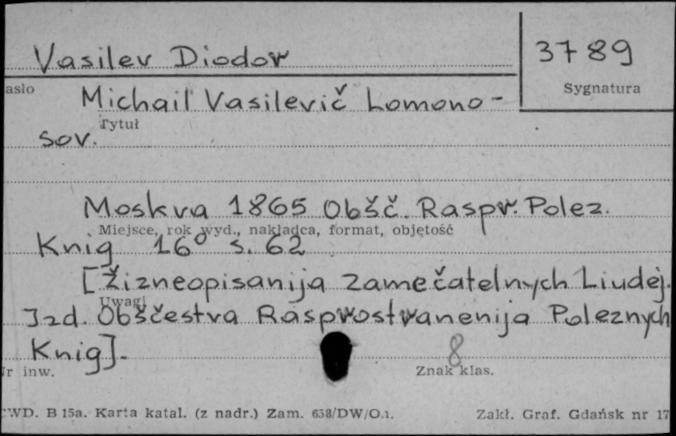 Vasilev Diodor
3789
asło
Sygnatura
Michail Vasilevič Lomono-
Tytuł
sov.
Moskva 1865 Obšč. Raspr. Polez.
Miejsce, rok wyd., nakładca, format, objętość
Knig 16° s. 62
[Žizneopisanija zamečatelnych Liudej.
Uwagi
Izd. Obščestva Rasprostranenija Poleznych
Knig].
8
r inw.
Znak klas.
WD. B 15a. Karta katal. (z nadr.) Zam. 638/DW/O.1.
Zakł. Graf. Gdańsk nr 17